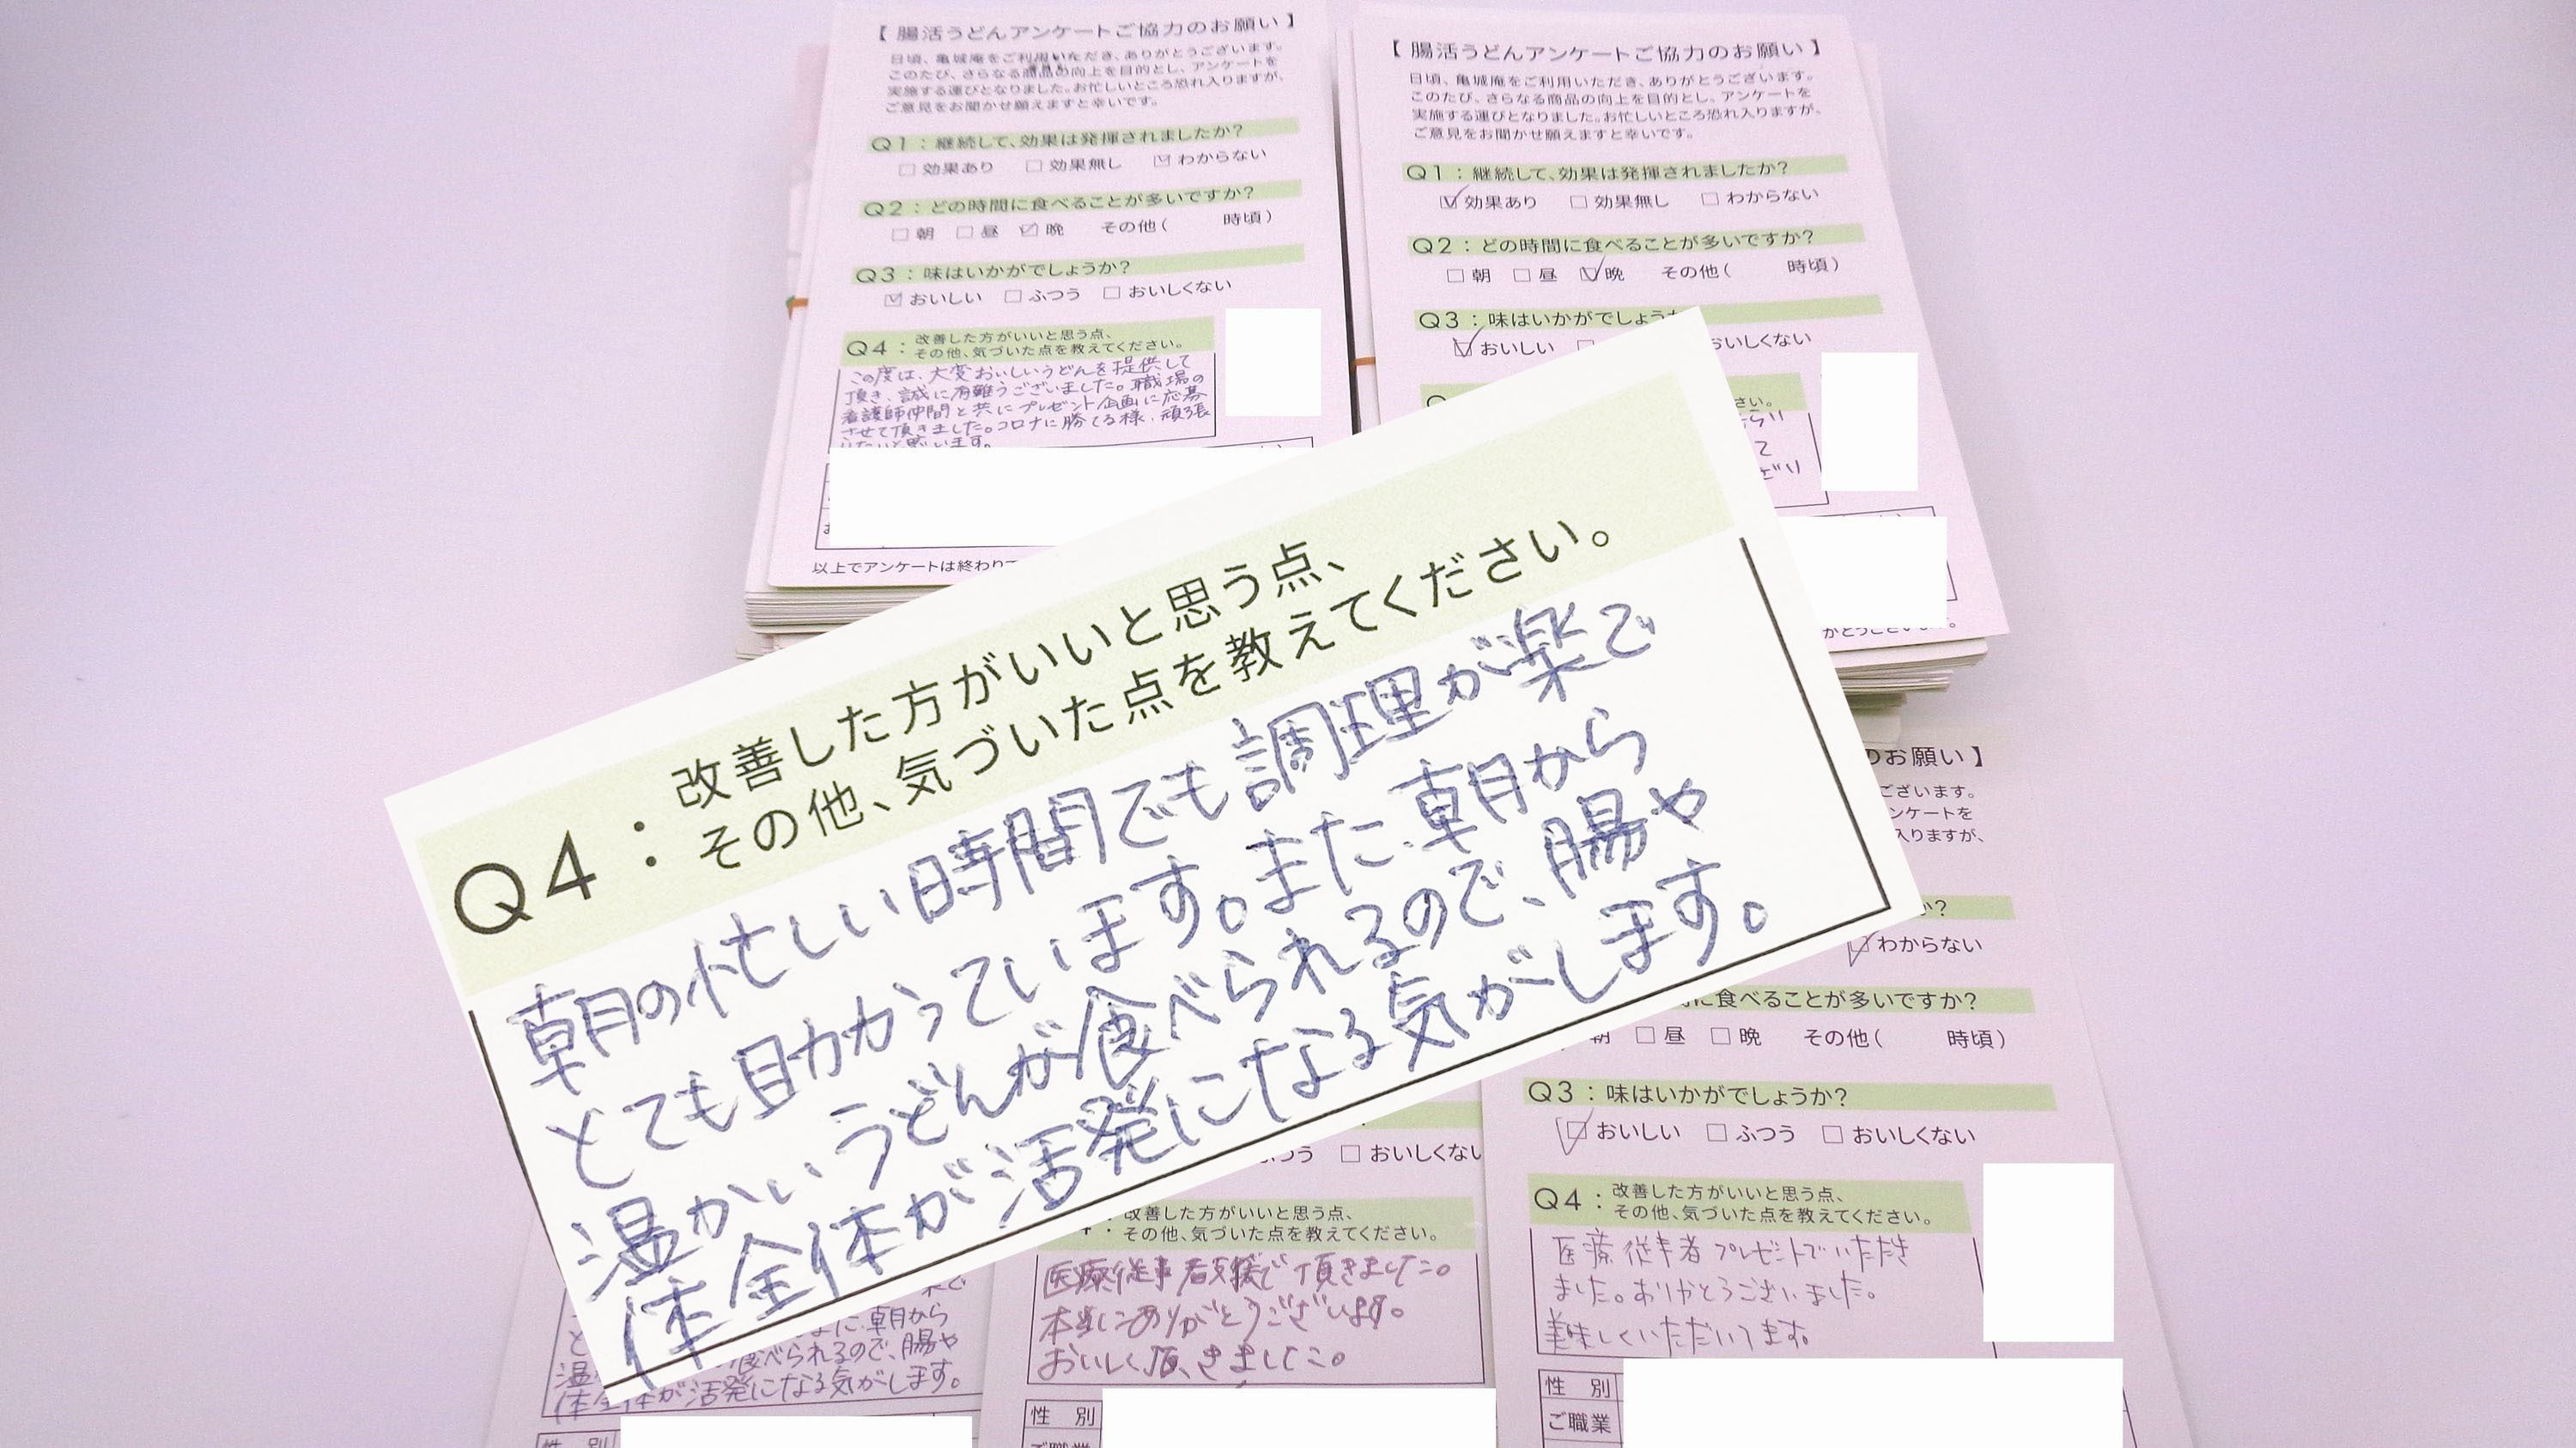 【 腸活うどんアンケートご協力のお願い 】
日頃、亀城庵をご利用いただき、ありがとうございます。
このたび、さらなる商品の向上を目的とし、アンケートを
実施する運びとなりました。お忙しいところ恐れ入りますが、
ご意見をお聞かせ願えますと幸いです。
Q1：継続して、効果は発揮されましたか?
□ 効果あり □ 効果無し ☑ わからない
Q2：どの時間に食べることが多いですか?
□ 朝 □ 昼 ☑ 晩 その他( 時頃)
Q3：味はいかがでしょうか?
☑ おいしい □ ふつう □ おいしくない
Q4：改善した方がいいと思う点、
その他、気づいた点を教えてください。
この度は、大変おいしいうどんを提供して
頂き、誠に有難うございました。職場の
看護師仲間と共にプレゼント企画に応募
させて頂きました。コロナに勝てる様、頑張
りたいと思います。
以上でアンケートは終わりで
【 腸活うどんアンケートご協力のお願い 】
日頃、亀城庵をご利用いただき、ありがとうございます。
このたび、さらなる商品の向上を目的とし、アンケートを
実施する運びとなりました。お忙しいところ恐れ入りますが、
ご意見をお聞かせ願えますと幸いです。
Q1：継続して、効果は発揮されましたか?
☑ 効果あり □ 効果無し □ わからない
Q2：どの時間に食べることが多いですか?
□ 朝 □ 昼 ☑ 晩 その他( 時頃)
Q3：味はいかがでしょうか
☑ おいしい □ おいしくない
さい。
がとうございます。
Q4：改善した方がいいと思う点、
その他、気づいた点を教えてください。
朝の忙しい時間でも調理が楽で
とても助かっています。また朝から
温かいうどんが食べられるので、腸や
体全体が活発になる気がします。
のお願い 】
ございます。
ンケートを
入りますが、
か?
☑ わからない
に食べることが多いですか?
朝 □ 昼 □ 晩 その他( 時頃)
Q3：味はいかがでしょうか?
☑ おいしい □ ふつう □ おいしくない
Q4：改善した方がいいと思う点、
その他、気づいた点を教えてください。
医療従事者プレゼントでいただき
ました。ありがとうございました。
美味しくいただいてます。
性 別
ご職業
ふつう □ おいしくない
改善した方がいいと思う点、
その他、気づいた点を教えてください。
医療従事者支援で頂きました。
本当にありがとうございます。
おいしく頂きました。
性 別
ご職業
楽で
また朝から
食べられるので、腸や
体全体が活発になる気がします。
性 別